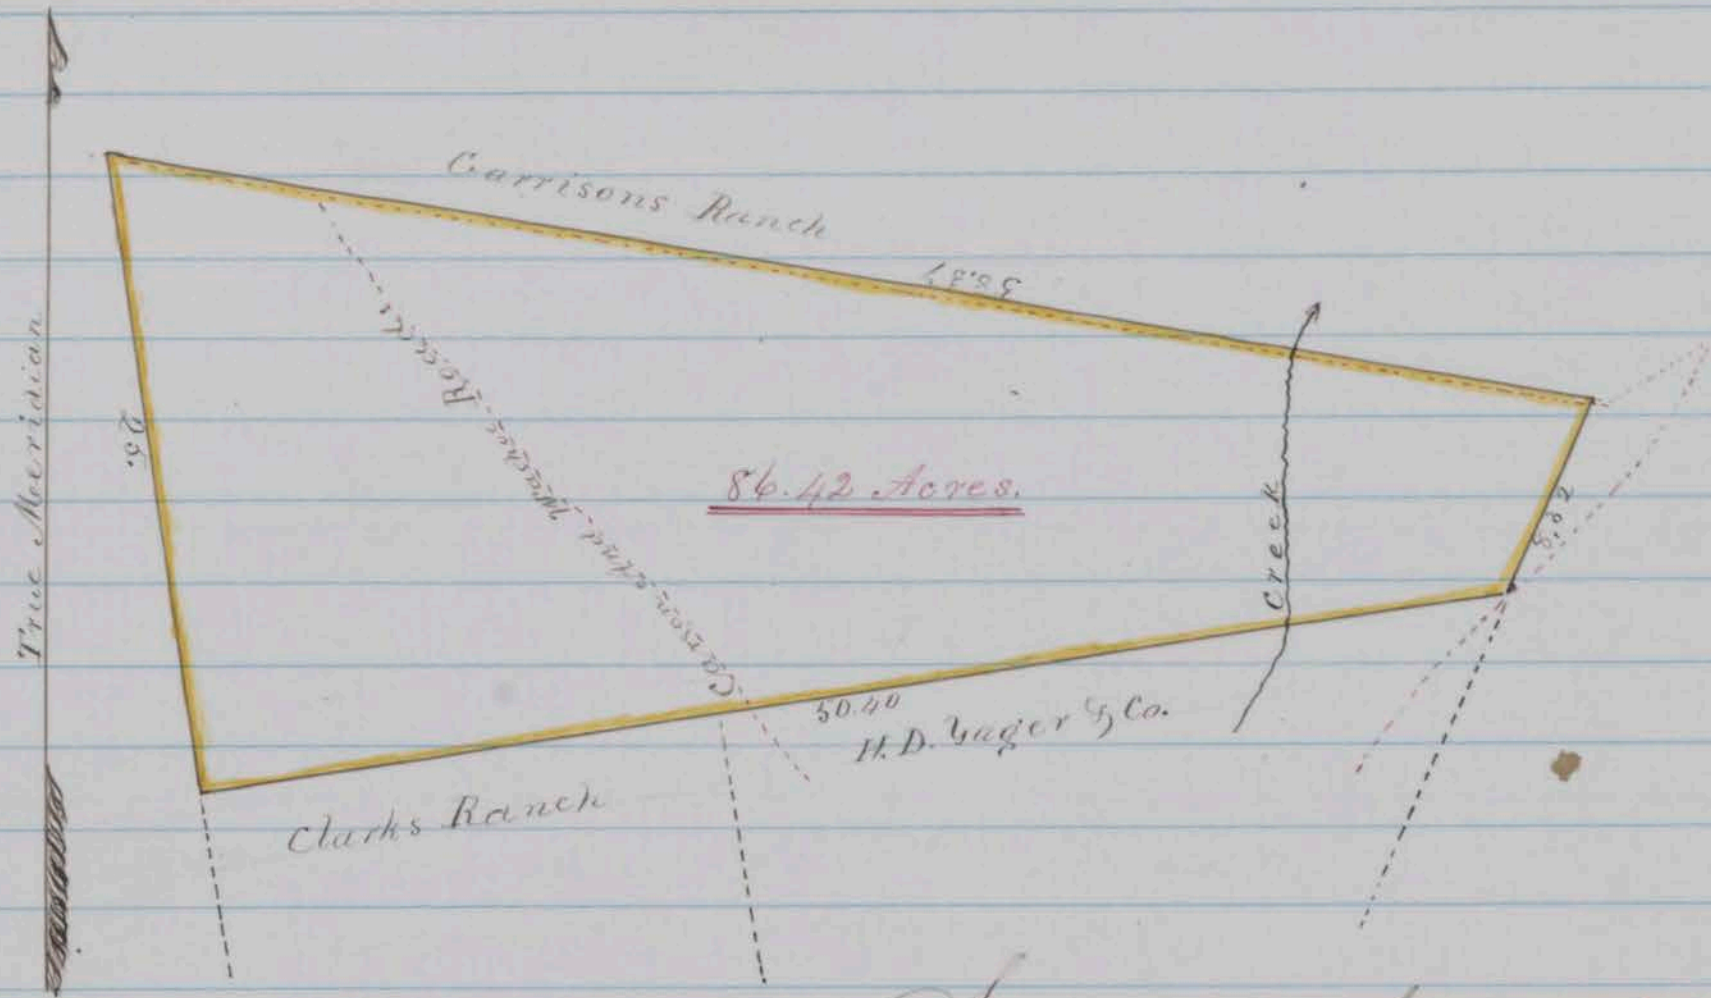 True Meridian
Garrisons Ranch
Carson And Washoe Road
86.42 Acres.
Creek
8.02
50.40
H.D. Yager & Co.
Clarks Ranch